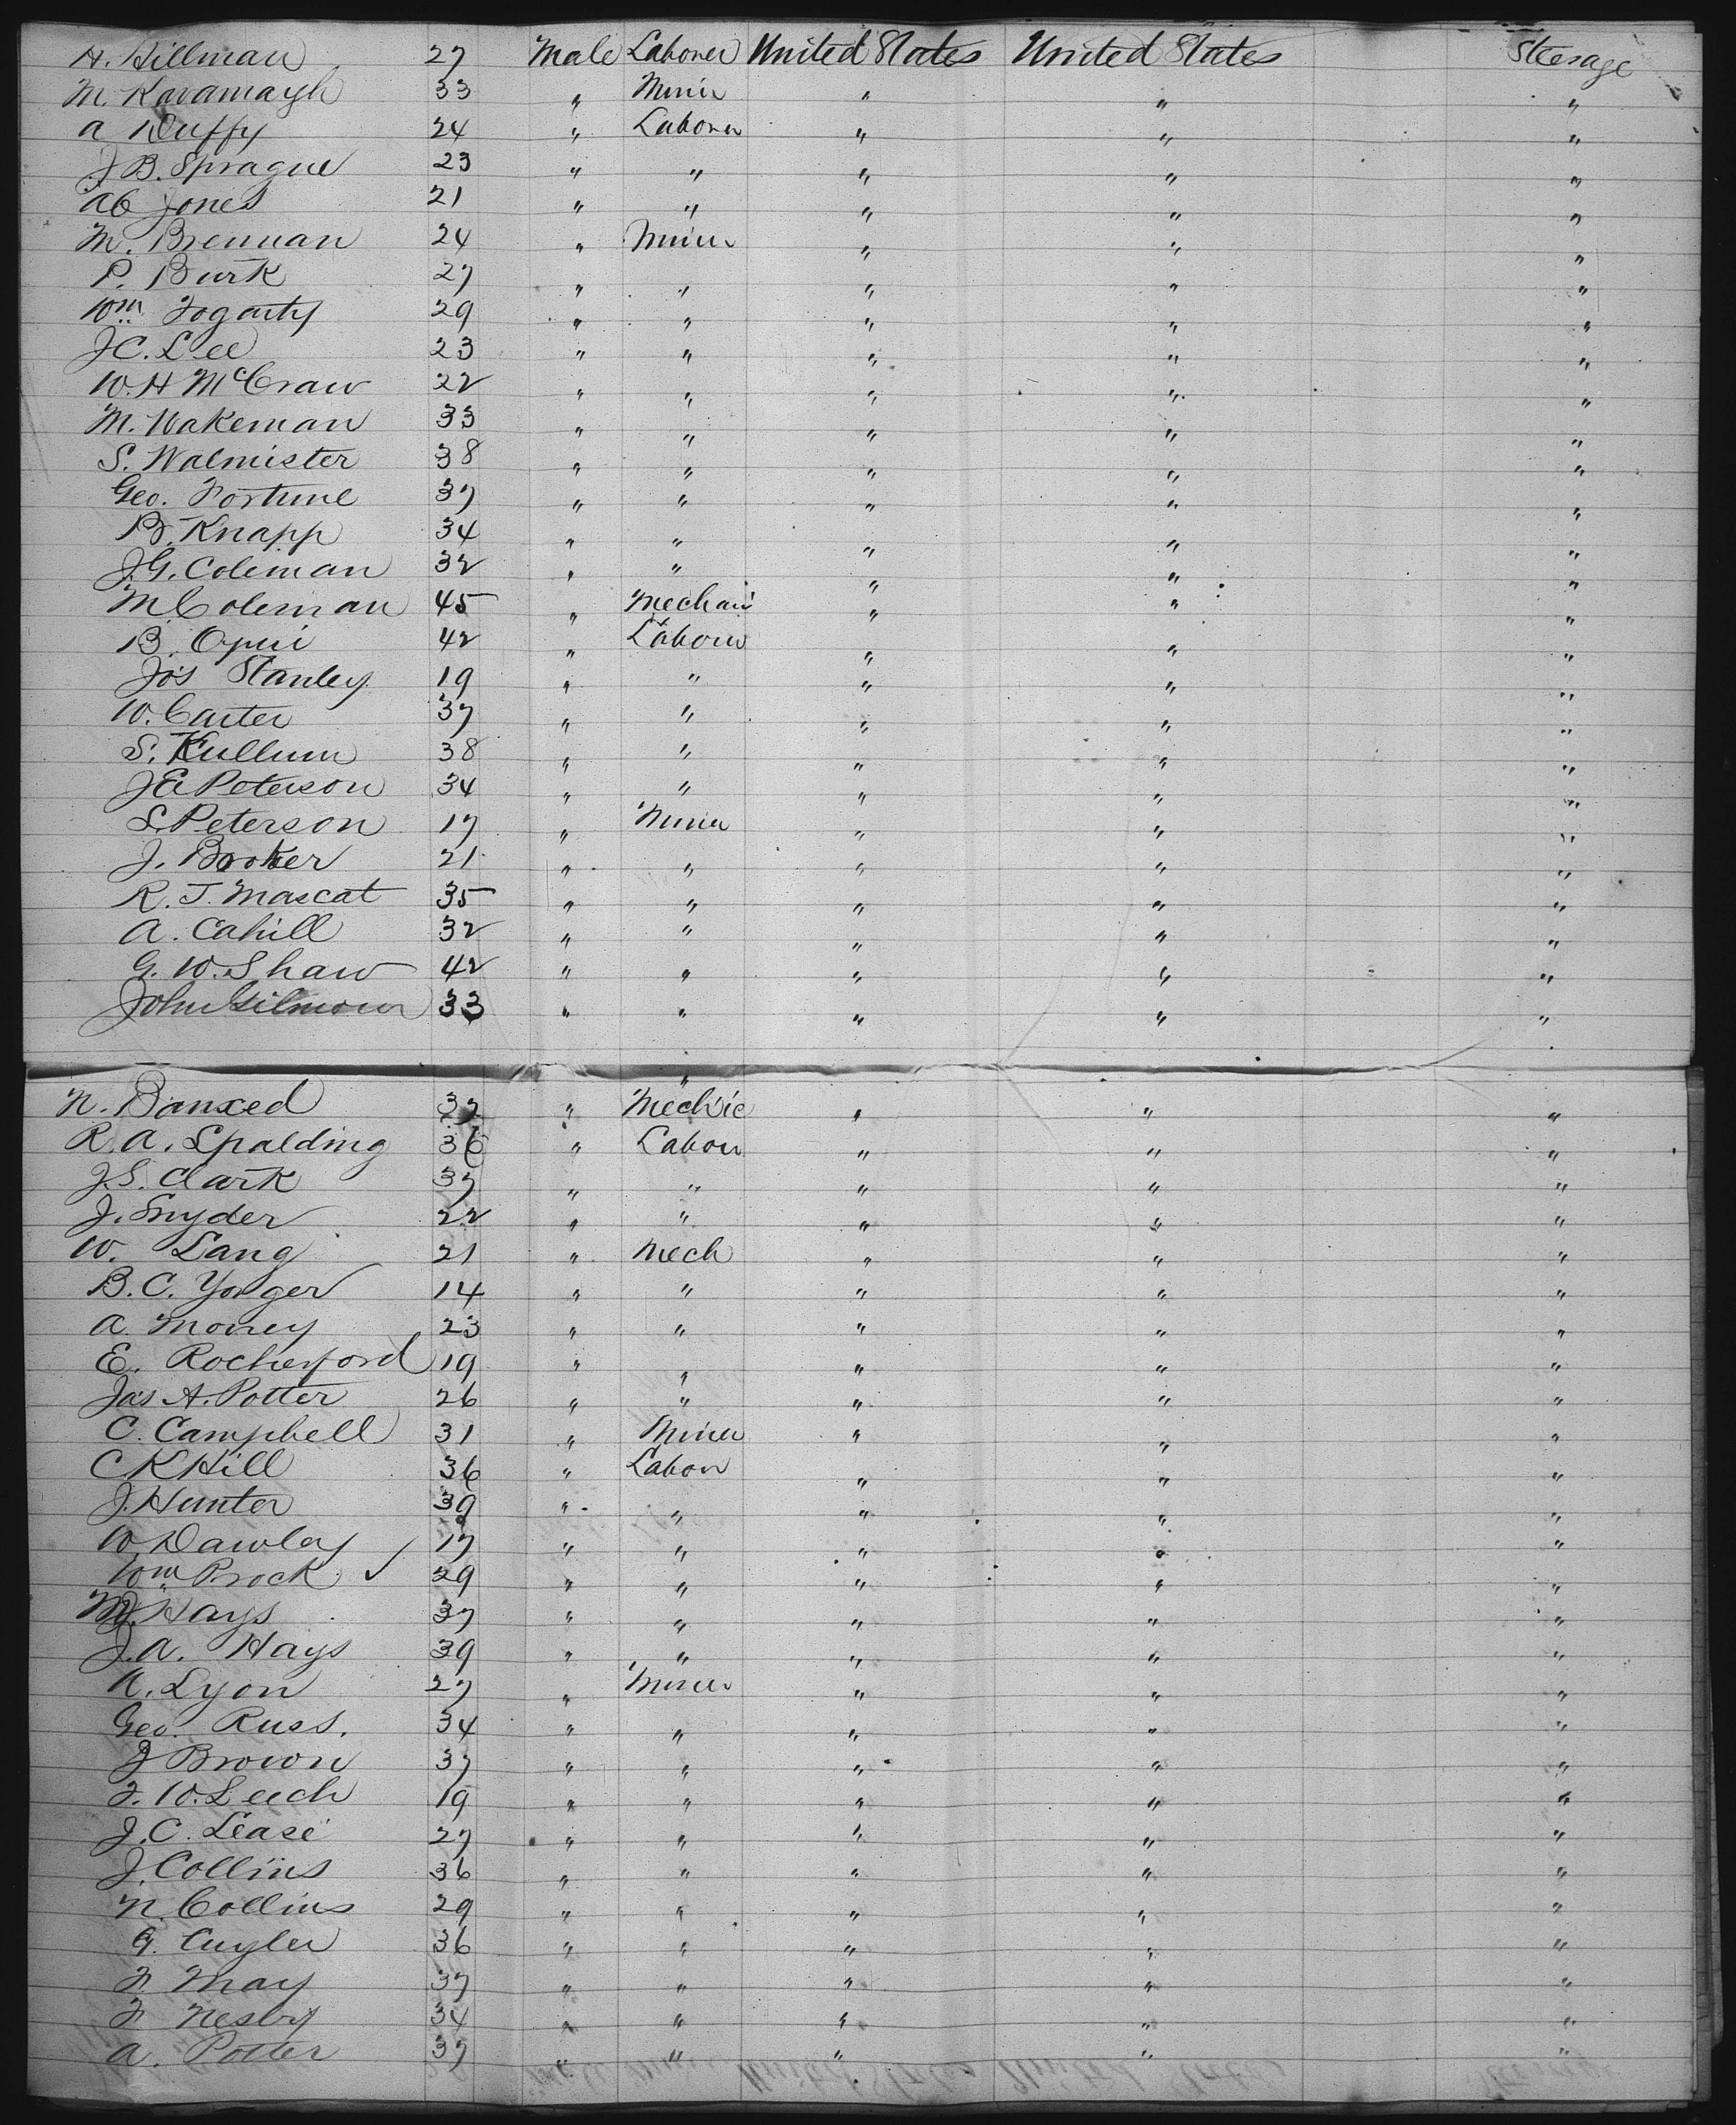 H. Hillman 27 Male Laborer United States United States Steerage
M. Kavanaugh 33 " Miner " " "
A Duffy 24 " Laborer " " "
J B. Sprague 23 " " " " "
Ab Jones 21 " " " " "
M. Brennan 24 " Miner " " "
P. Burk 27 " " " " "
Wm. Fogarty 29 " " " " "
J C. Lee 23 " " " " "
W. H McCraw 22 " " " " "
M. Wakeman 33 " " " " "
S. Walmister 38 " " " " "
Geo. Fortune 37 " " " " "
B. Knapp 34 " " " " "
J. G. Coleman 32 " " " " "
M Coleman 45 " Mechani " " "
B. 42 " Laborer " " "
Jos Stanley 19 " " " " "
W. Carter 37 " " " " "
S. Kullum 38 " " " " "
J E Peterson 34 " " " " "
S. Peterson 17 " Miner " " "
J. Brooker 21 " " " " "
R. J. Mascat 35 " " " " "
A. Cahill 32 " " " " "
G. W. Shaw 42 " " " " "
John Gilmour 33 " " " " "
"
N. Banxed 32 " Mechic " " "
R. A. Spalding 36 " Labour " " "
J. S. Clark 37 " " " " "
J. Snyder 22 " " " " "
W. Lang 21 " Mech " " "
B. C. Yonger 14 " " " " "
A. Money 23 " " " " "
E. Rocherford 19 " " " " "
Jas A. Potter 26 " " " " "
C. Campbell 31 " Miner " " "
C K Hill 36 " Labor " " "
J. Hunter 39 " " " " "
W Dawlay 17 " " " " "
Wm. Prock ✓ 29 " " " " "
M. Hays 37 " " " " "
J. A. Hays 39 " " " " "
N. Lyon 27 " Miner " " "
Geo. Russ. 34 " " " " "
J Brown 37 " " " " "
F. W. Leech 19 " " " " "
J. C. Lease 27 " " " " "
J. Collins 36 " " " " "
N. Collins 29 " " " " "
G. Cuyler 36 " " " " "
F. May 37 " " " " "
F. Nesby 34 " " " " "
A. Potter 37 " " " " "